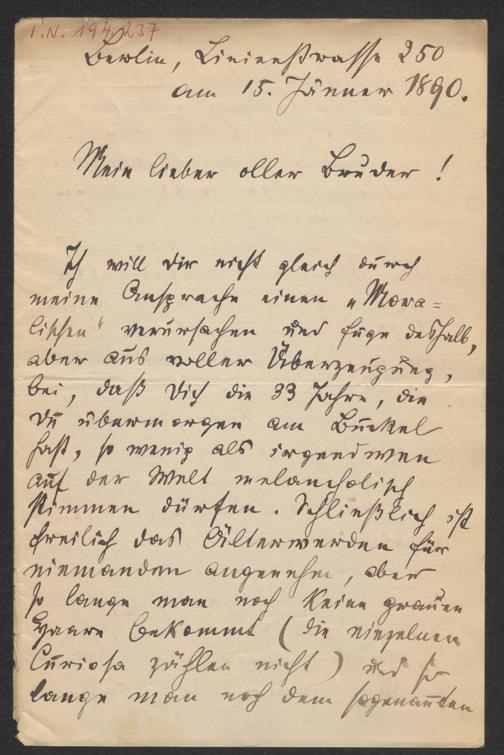 I.N. 194.237
Berlin, Linienstrasse 250
am 15. Jänner 1890.
Mein lieber oller Bruder!
Ich will Dir nicht gleich durch
meine Ansprache einen „Mora=
lischen“ verursachen und füge deshalb,
aber aus voller Überzeugung,
bei, daß Dich die 33 Jahre, die
Du übermorgen am Buckel
hast, so wenig als irgendwen
auf der Welt melancholisch
stimmen dürfen. Schließlich ist
freilich das Älterwerden für
niemanden angenehm, aber
so lange man noch keine grauen
Haare bekommt (die einzelnen
Curiosa zählen nicht) und so
lange man noch dem sogenannten